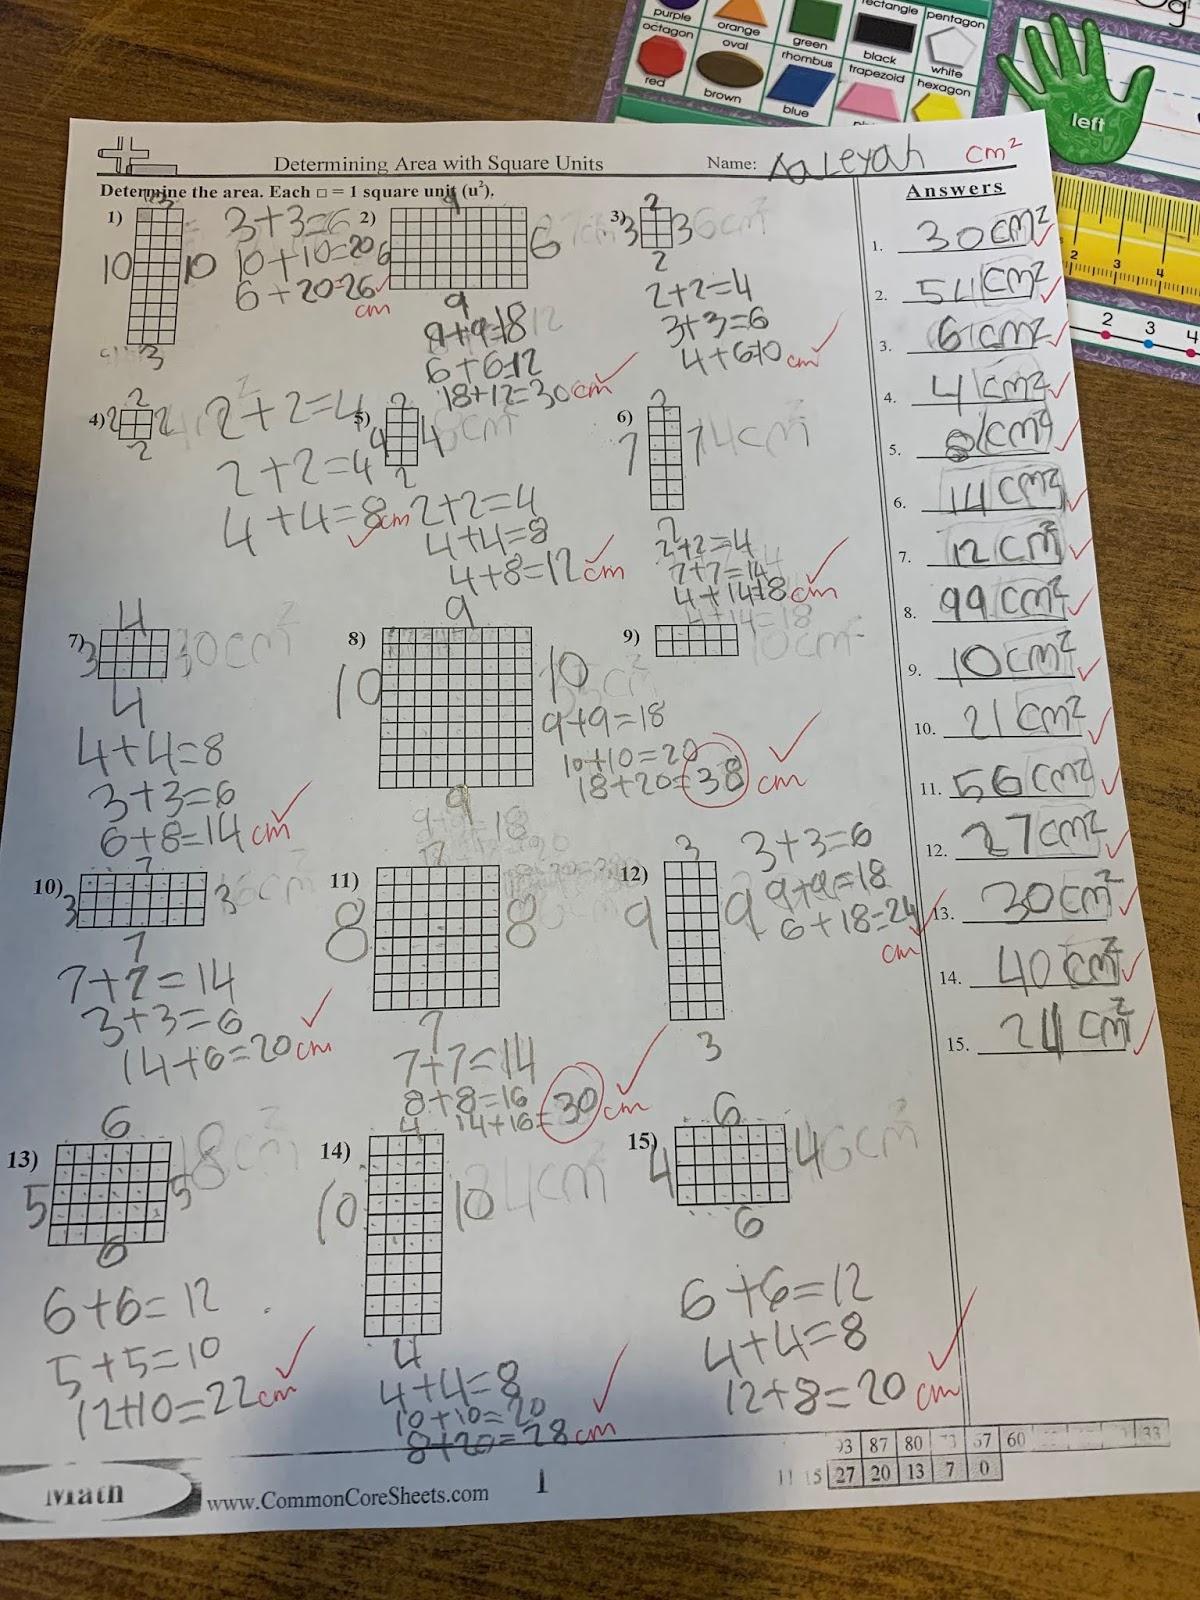 purple
orange
green
rectangle
black
pentagon
white
octagon
red
oval
brown
rhombus
blue
trapezoid
hexagon
left
Determining Area with Square Units
Name: Aaleyah cm²
Determine the area. Each □ = 1 square unit (u²).
Answers
1)
3
10
10
3
3+3=6
10+10=20
6+20=26
cm
2)
9
6
6
9
9+9=18
6+6=12
18+12=30 cm
3)
2
3
3
2
6cm²
2+2=4
3+3=6
4+6=10 cm
4)
2
2
2
2
2+2=4
2+2=4
4+4=8 cm
5)
2
4
4
2
8cm²
2+2=4
4+4=8
4+8=12 cm
6)
2
7
7
14cm²
2+2=4
7+7=14
4+14=18 cm
4+14=18
7)
4
3
4
4+4=8
3+3=6
6+8=14 cm
8)
9
10
10
9
9+9=18
10+10=20
18+20=38 cm
9)
10cm²
10)
7
3
3
7
7+7=14
3+3=6
14+6=20 cm
11)
7
8
8
7
7+7=14
8+8=16
14+16=30 cm
12)
3
9
9
3
3+3=6
9+9=18
6+18=24
cm
13)
6
5
5
6
18cm²
6+6=12
5+5=10
12+10=22 cm
14)
4
10
10
4
4+4=8
10+10=20
8+20=28 cm
15)
6
4
4
6
6+6=12
4+4=8
12+8=20 cm
1. 30cm²
2. 54cm²
3. 6cm²
4. 4cm²
5. 8cm²
6. 14cm²
7. 12cm²
8. 99cm²
9. 10cm²
10. 21cm²
11. 56cm²
12. 27cm²
13. 30cm²
14. 40cm²
15. 24cm²
Math
www.CommonCoreSheets.com
1
93 87 80 73 67 60 33
11-15 27 20 13 7 0
2 3 4
2 3 4